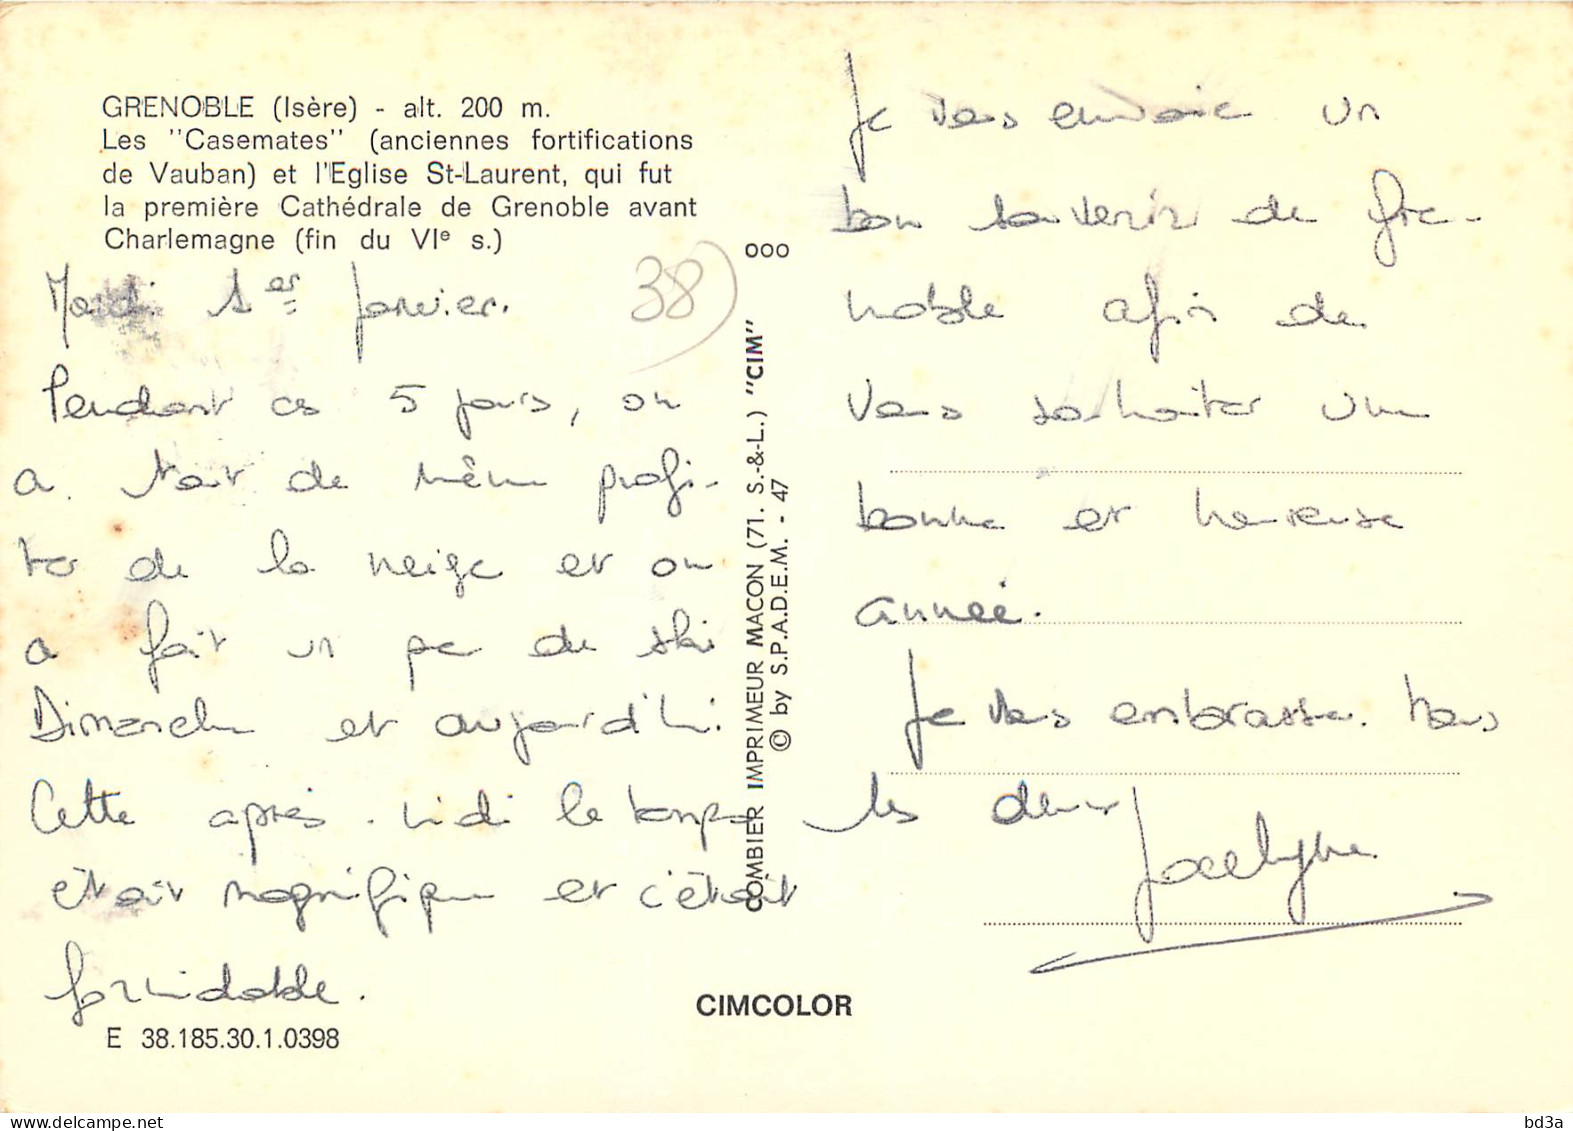 GRENOBLE (Isère) - alt. 200 m.
Les "Casemates" (anciennes fortifications
de Vauban) et l'Eglise St-Laurent, qui fut
la première Cathédrale de Grenoble avant
Charlemagne (fin du VIe s.)
Mardi 1er janvier.
38
Pendant ces 5 jours, on
a tout de même profi-
ter de la neige et on
a fait un peu de ski
Dimanche et aujourd'hui.
Cette après-midi le temps
était magnifique et c'était
formidable.
E 38.185.30.1.0398
COMBIER IMPRIMEUR MACON (71. S.-&-L.) "CIM"
© by S.P.A.D.E.M. - 47
ooo
CIMCOLOR
Je vous envoie un
bon souvenir de Gre-
noble afin de
vous souhaiter une
bonne et heureuse
année.
Je vous embrasse. Tous
les deux
Jocelyne
www.delcampe.net
bd3a